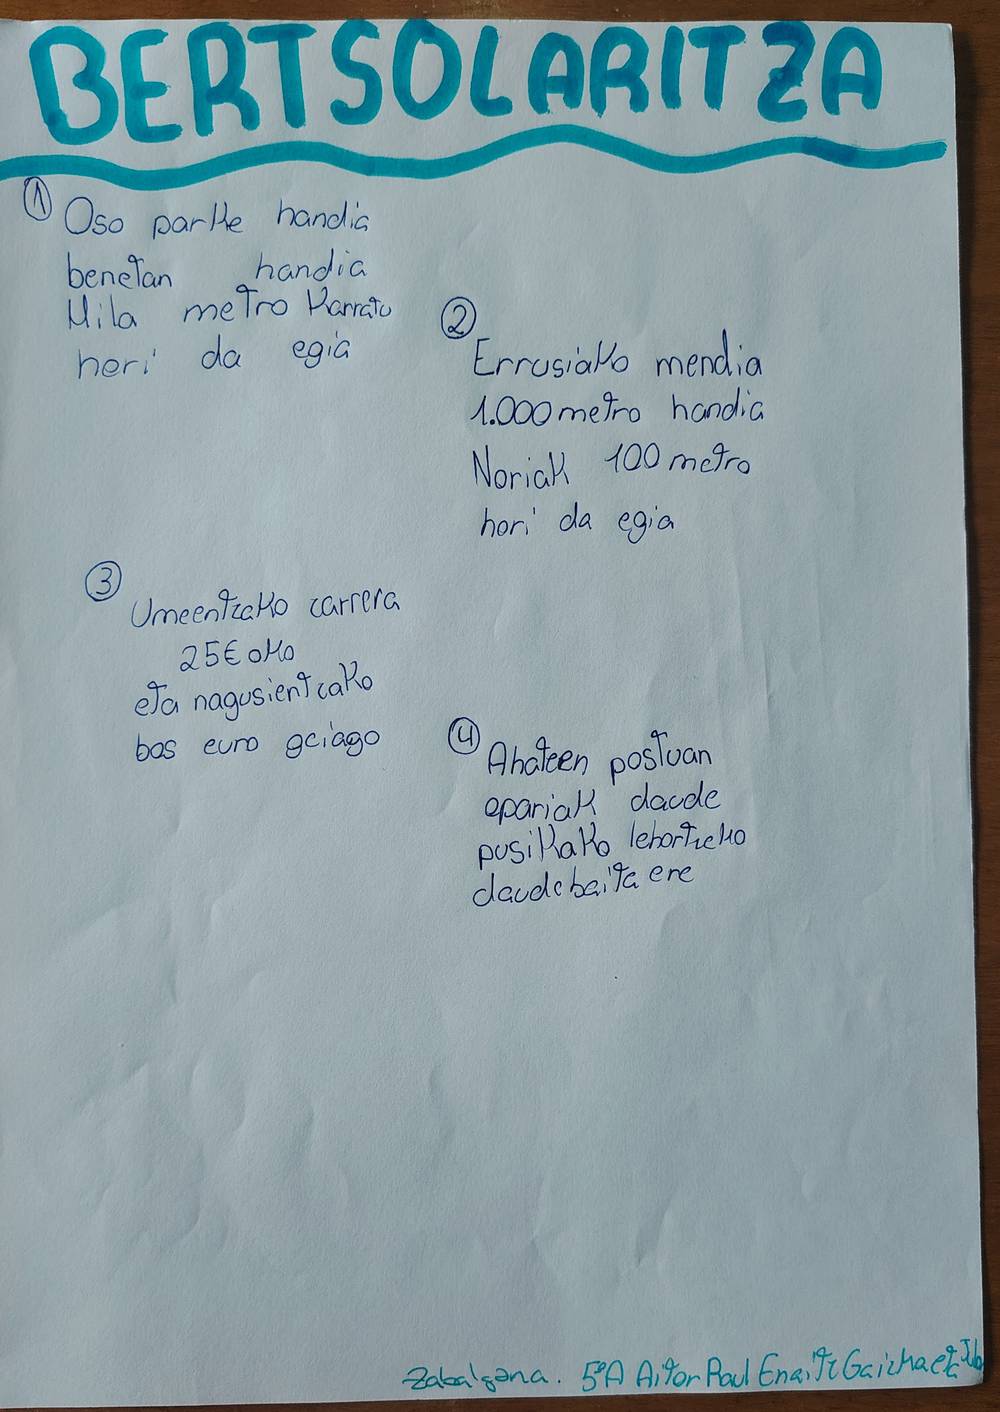 BERTSOLARITZA
1 Oso parke handia
benetan handia
Mila metro karratu
hori da egia
2
Errusiako mendia
1.000 metro handia
Noriak 100 metro
hori da egia
3
Umeentzako carrera
25€ oko
eta nagusientzako
bos euro geiago
4 Ahateen postuan
opariak daude
pusikako lehortzeko
daude baita ere
Zabalgana. 5ºA Aitor Raul Enaitz Gaizka eta